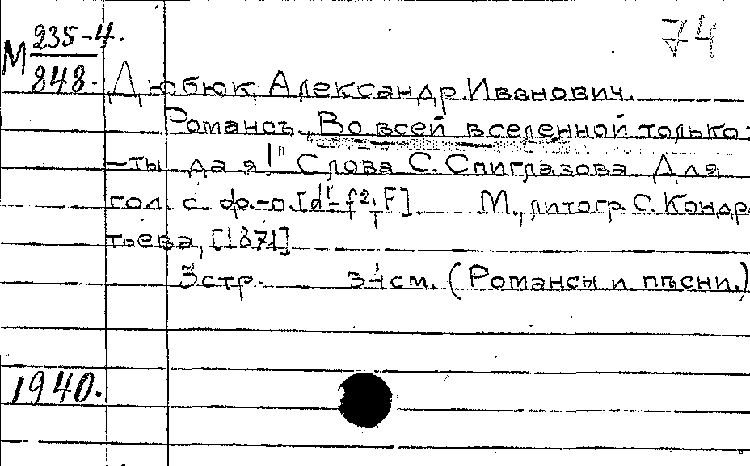 74
М 235-4.
848.
Дюбюк, Александр Иванович.
Романсъ. „Во всей вселенной только
-ты да я!" Слова С. Спиглазова. Для
гол. с ф.-п. [d¹-f², F] М., литогр. С. Кондр
тьева, [1871]
3 стр. 34 см. (Романсы и пѣсни.)
1940.